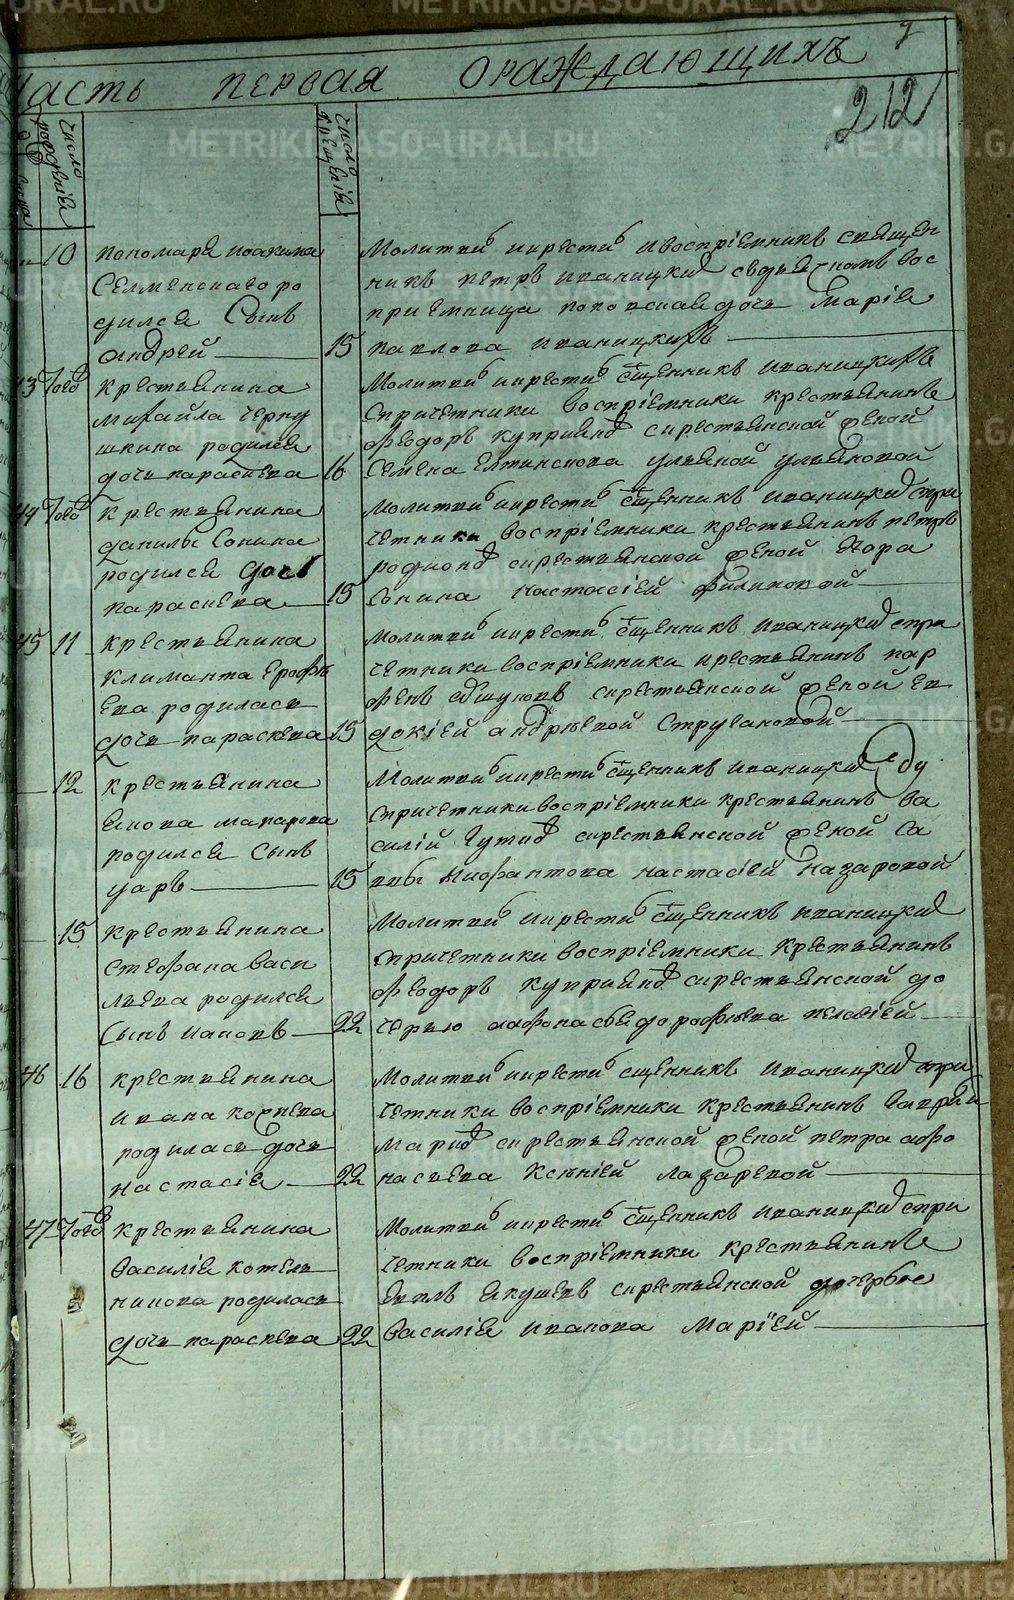 часть первая ораждающихъ
212
число рожденія
число крещенія
10 пономаря иоакима
Селменскаго ро
дился Сынъ
андрей 15
Молитвы икрести ивоспріемникъ священ
никъ петръ иваницки
приемница поповская дочь Марія
павлова иваницкихъ
43 того крестьянина
михайла черну
шкина родился
дочь параскева 16
Молитвы икрести сщенникъ иваницки
спричетники воспріемники крестьянинъ
федоръ куприянъ скрестьянской женой
Семена улянои уляновой
44 того крестьянина
данилы Сонина
родился дочь
параскева 15
Молитвы икрести сщенникъ иваницки спри
четники воспріемники крестьянинъ петръ
родионъ скрестьянской женой
Сонина настасіей филиповой
45 11 крестьянина
климанта ерофѣ
ева родилась
дочь параскева 15
Молитвы икрести сщенникъ иваницки спри
четники воспріемники крестьянинъ пар
фенъ скрестьянской женой ев
докіей андрѣевой Стругановой
12 крестьянина
якова макарова
родился Сынъ
15
Молитвы икрести сщенникъ иваницки
спричетники воспріемники крестьянинъ ва
силій скрестьянской женой Са
настасіей назаровой
15 крестьянина
стефана васи
льева родился
Сынъ 22
Молитвы икрести сщенникъ иваницки
спричетники воспріемники крестьянинъ
федоръ куприянъ скрестьянской до
черью пелагіей
46 16 крестьянина
ивана корнева
родилась дочь
настасія 22
Молитвы икрести сщенникъ иваницки спри
четники воспріемники крестьянинъ гаврии
скрестьянской женой петра афо
насьева Ксѣніей лазаревой
47 того крестьянина
василія котель
никова родилась
дочь параскева 22
Молитвы икрести сщенникъ иваницки спри
четники воспріемники крестьянинъ
якушевъ скрестьянской дочерью
василія иванова маріей
METRIKI.GASO-URAL.RU